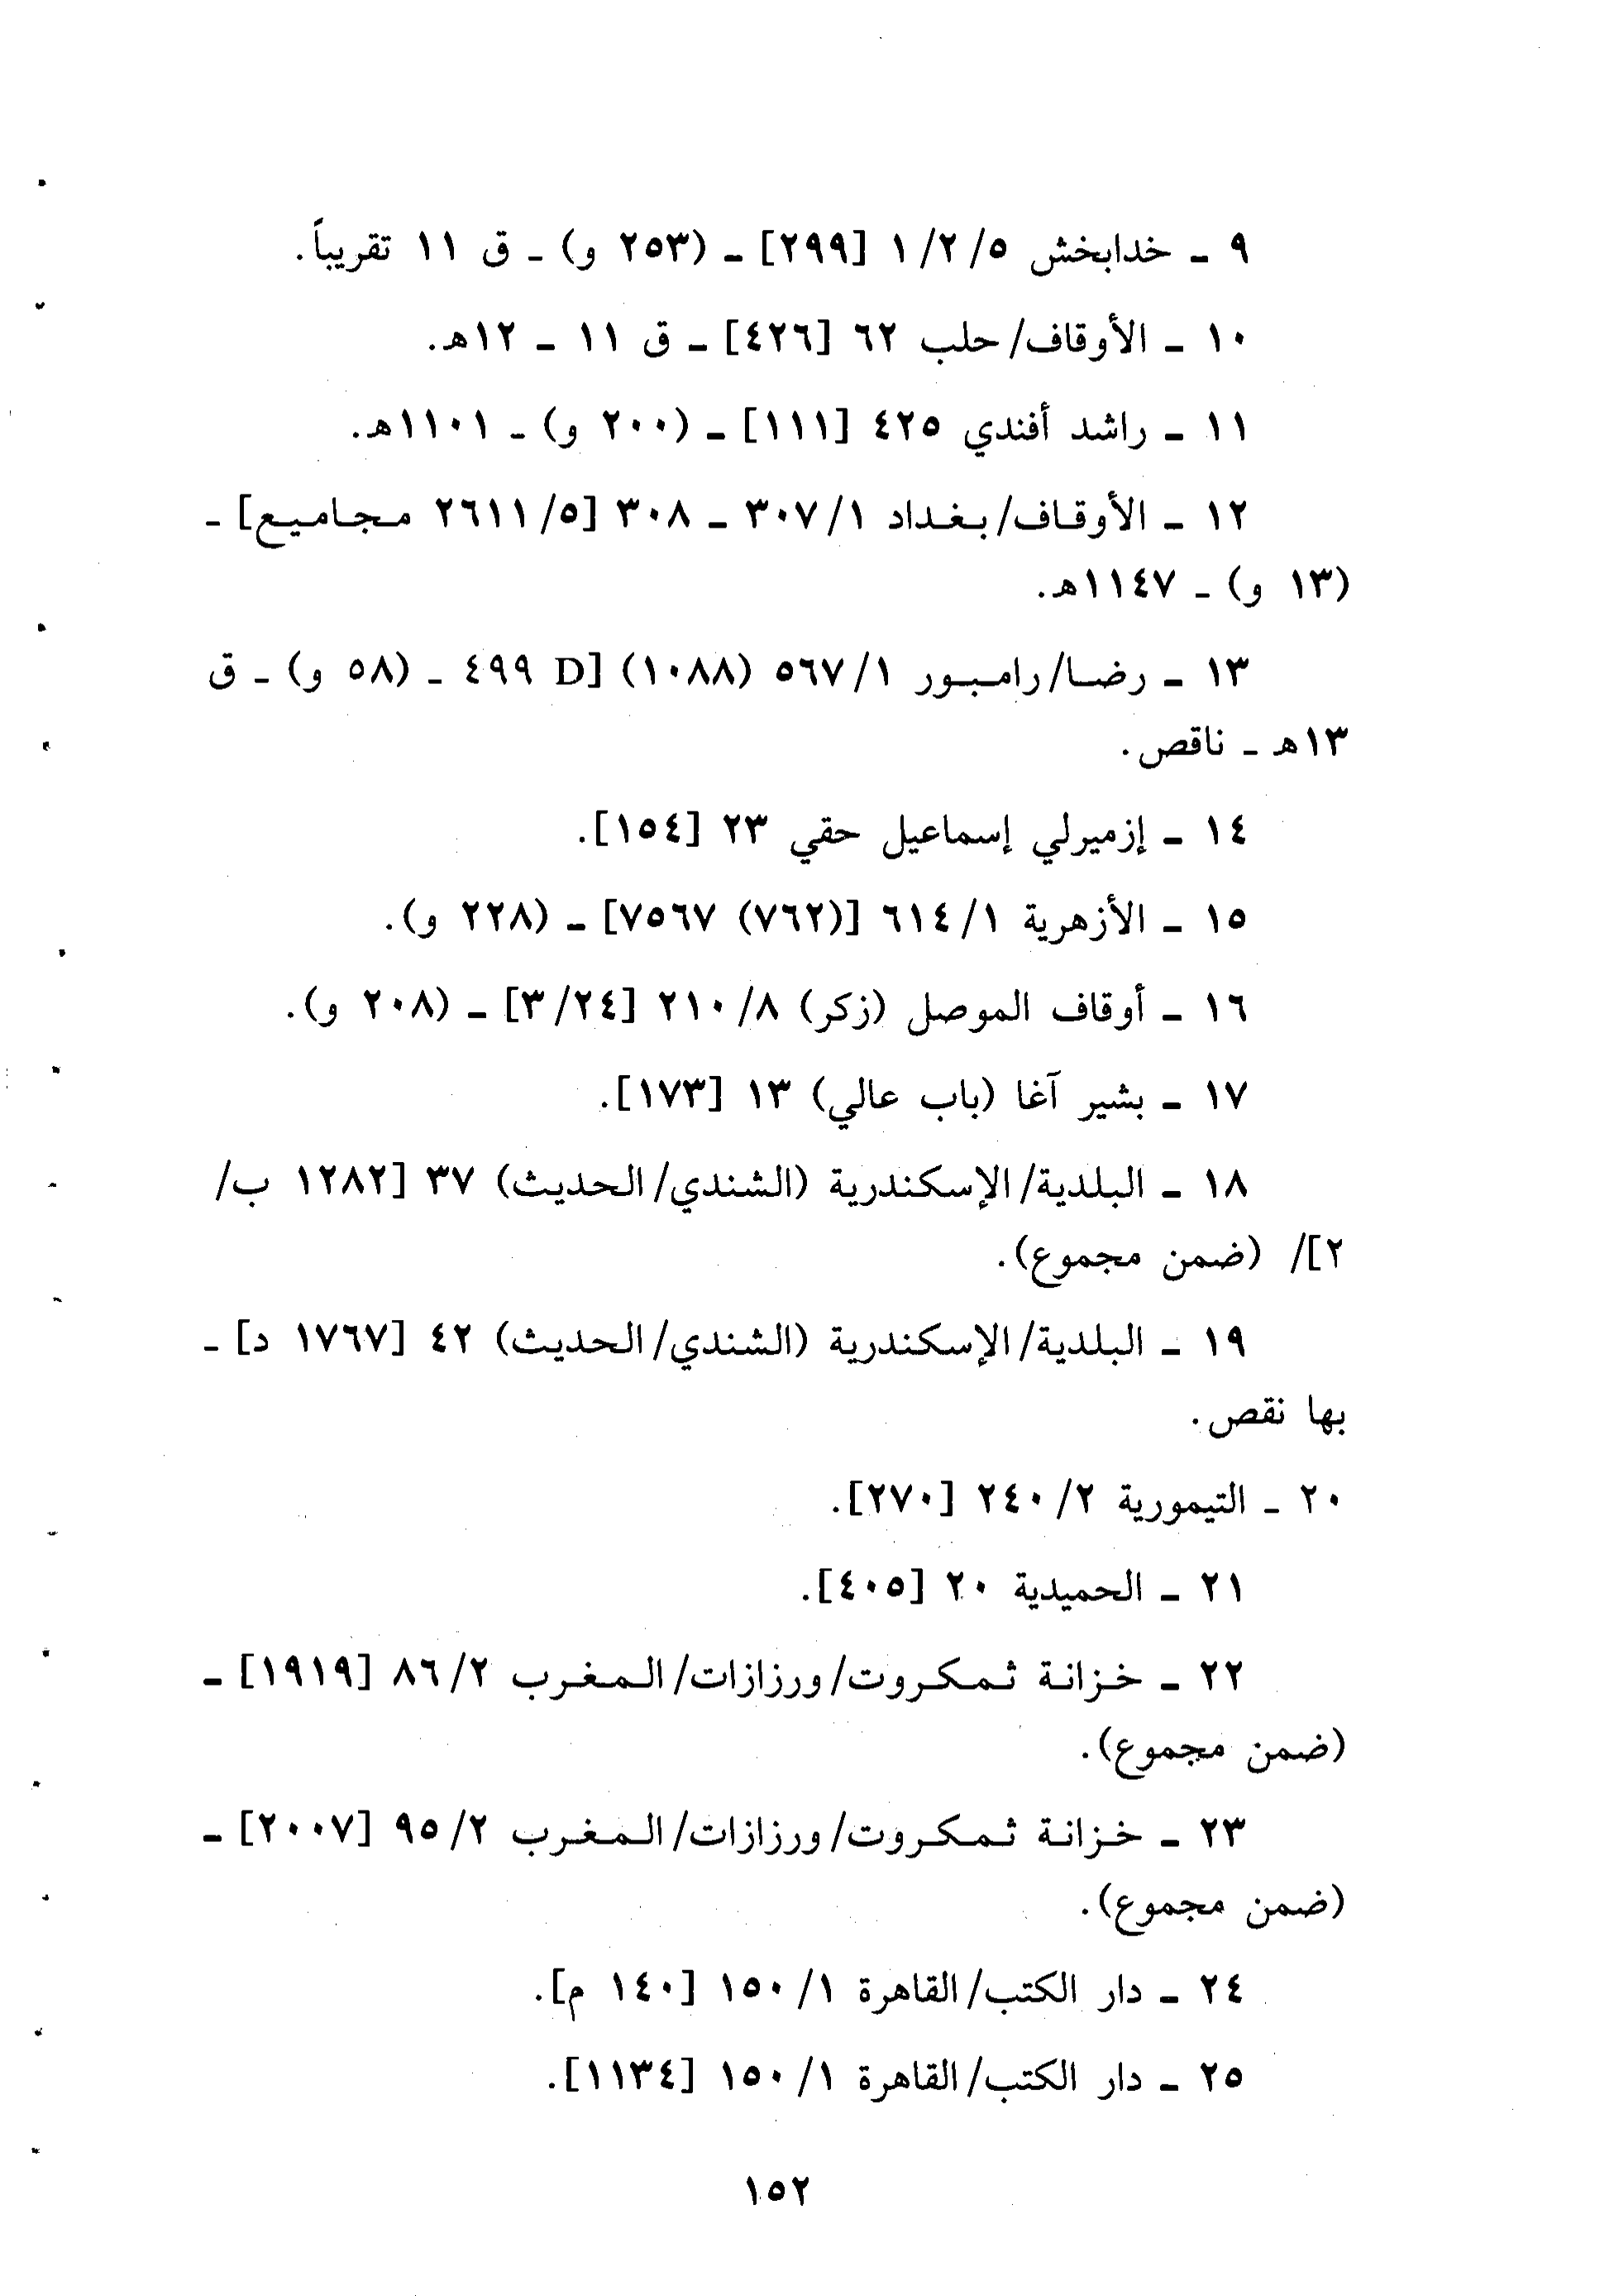 ٩ ـ خدابخش ١/٢/٥ [٢٩٩] ـ (٢٥٣ و) ـ ق ١١ تقريباً.
١٠ ـ الأوقاف/حلب ٦٢ [٤٢٦] ـ ق ١١ ـ ١٢هـ.
١١ ـ راشد أفندي ٤٢٥ [١١١] ـ (٢٠٠ و) ـ ١١٠١هـ.
١٢ ـ الأوقاف/بغداد ٣٠٧/١ ـ ٣٠٨ [٢٦١١/٥ مجاميع] ـ
(١٣ و) ـ ١١٤٧هـ.
١٣ ـ رضا/رامبور ٥٦٧/١ (١٠٨٨) [D ٤٩٩ ـ (٥٨ و) ـ ق
١٣هـ ـ ناقص.
١٤ ـ إزميرلي إسماعيل حقي ٢٣ [١٥٤].
١٥ ـ الأزهرية ٦١٤/١ [(٧٦٢) ٧٥٦٧] ـ (٢٢٨ و).
١٦ ـ أوقاف الموصل (زكر) ٢١٠/٨ [٣/٢٤] ـ (٢٠٨ و).
١٧ ـ بشير آغا (باب عالي) ١٣ [١٧٣].
١٨ ـ البلدية/الإسكندرية (الشندي/الحديث) ٣٧ [١٢٨٢ ب/
٢]/ (ضمن مجموع).
١٩ ـ البلدية/الإسكندرية (الشندي/الحديث) ٤٢ [١٧٦٧ د] ـ
بها نقص.
٢٠ ـ التيمورية ٢٤٠/٢ [٢٧٠].
٢١ ـ الحميدية ٢٠ [٤٠٥].
٢٢ ـ خزانة ثمكروت/ورزازات/المغرب ٨٦/٢ [١٩١٩] ـ
(ضمن مجموع).
٢٣ ـ خزانة ثمكروت/ورزازات/المغرب ٩٥/٢ [٢٠٠٧] ـ
(ضمن مجموع).
٢٤ ـ دار الكتب/القاهرة ١٥٠/١ [١٤٠ م].
٢٥ ـ دار الكتب/القاهرة ١٥٠/١ [١١٣٤].
١٥٢